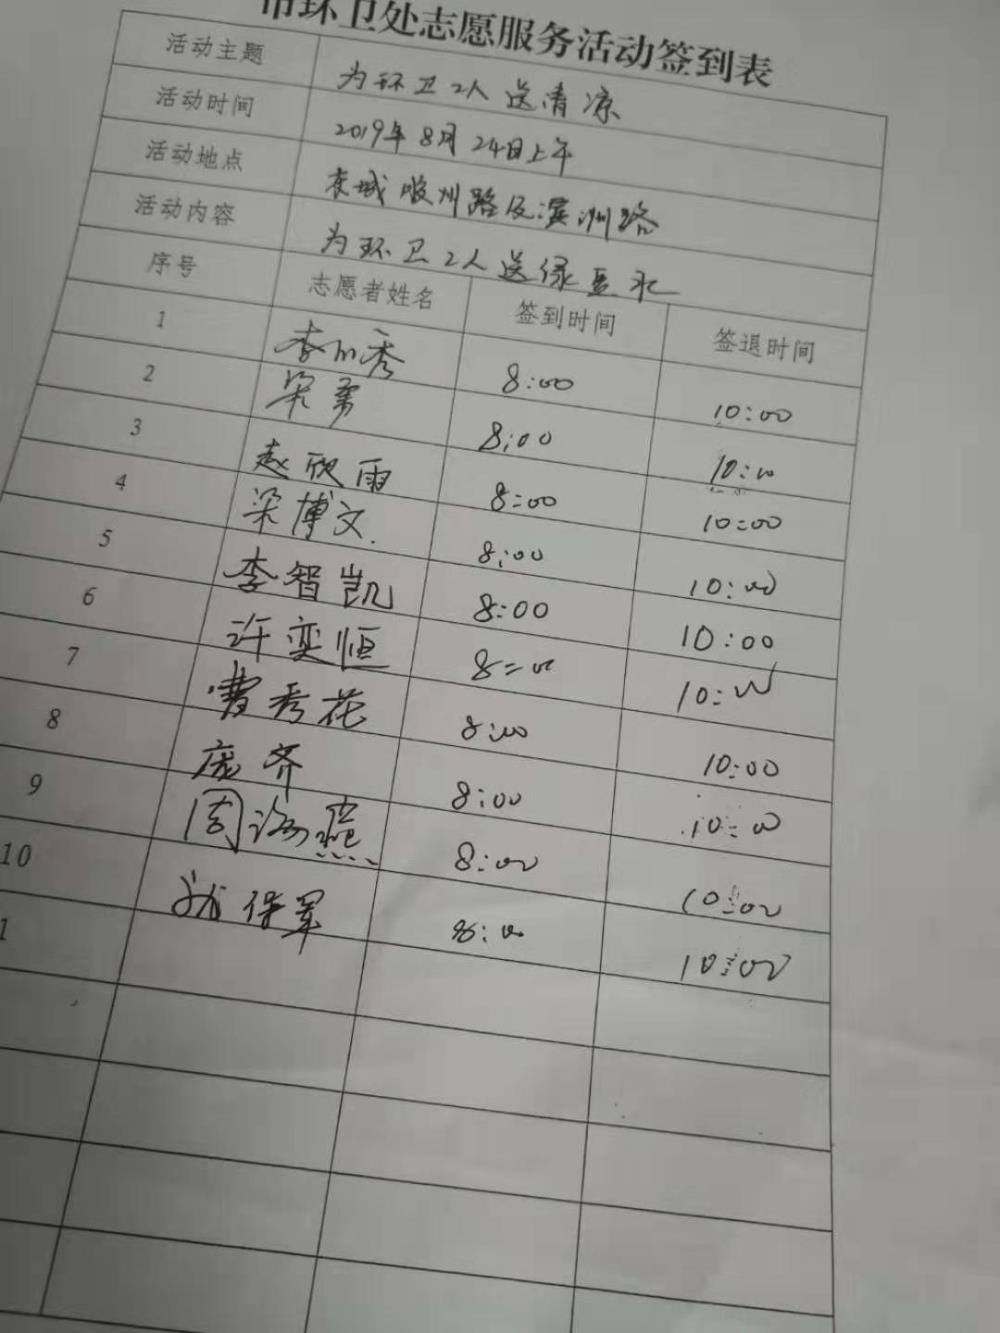 市环卫处志愿服务活动签到表
活动主题 为环卫工人送清凉
活动时间 2019年8月24日上午
活动地点 东城 州路及滨州路
活动内容 为环卫工人送绿豆水
序号 志愿者姓名 签到时间 签退时间
1 李 秀 8:00 10:00
2 梁 8:00 10:00
3 赵欣雨 8:00 10:00
4 梁博文 8:00 10:00
5 李智凯 8:00 10:00
6 许奕恒 8:00 10:00
7 曹秀花 8:00 10:00
8 庞齐 8:00 10:00
9 周海燕 8:00 10:00
10 保军 8:00 10:00
1